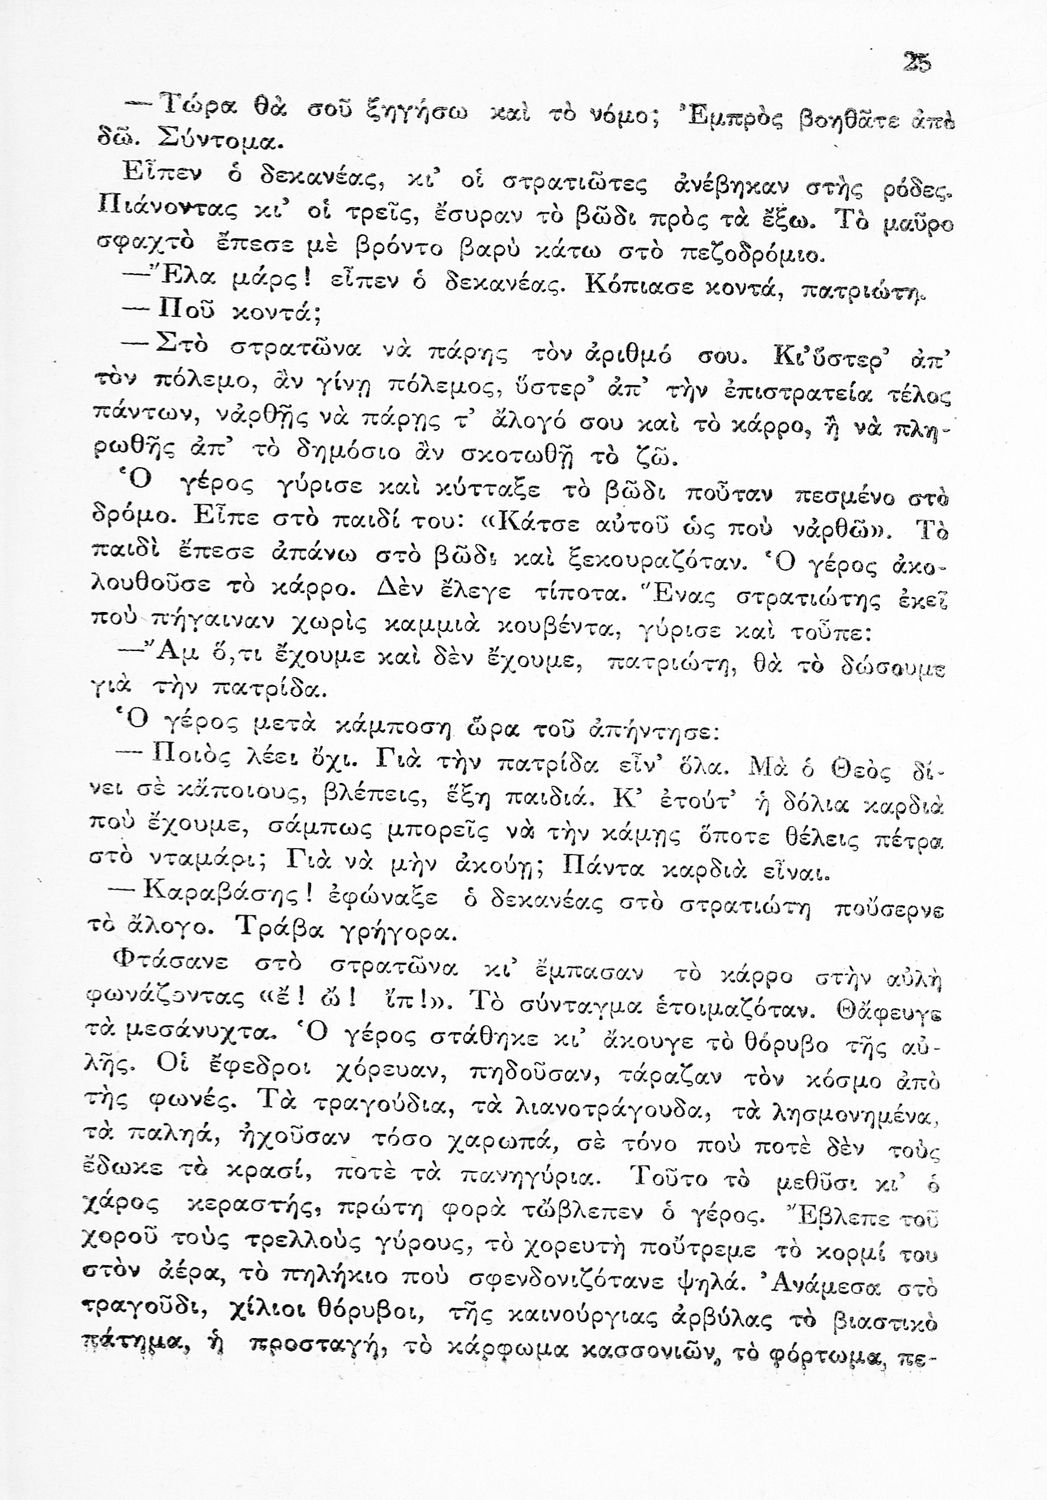 25
— Τώρα θὰ σοῦ ξηγήσω καὶ τὸ νόμο; Ἐμπρὸς βοηθᾶτε ἀπὸ
δῶ. Σύντομα.
Εἶπεν ὁ δεκανέας, κι’ οἱ στρατιῶτες ἀνέβηκαν στὴς ρόδες.
Πιάνοντας κι’ οἱ τρεῖς, ἔσυραν τὸ βῶδι πρὸς τὰ ἔξω. Τὸ μαῦρο
σφαχτὸ ἔπεσε μὲ βρόντο βαρὺ κάτω στὸ πεζοδρόμιο.
—Ἔλα μάρς! εἶπεν ὁ δεκανέας. Κόπιασε κοντά, πατριώτη.
— Ποῦ κοντά;
— Στὸ στρατῶνα νὰ πάρης τὸν ἀριθμό σου. Κι’ὕστερ’ ἀπ’
τὸν πόλεμο, ἂν γίνῃ πόλεμος, ὕστερ’ ἀπ’ τὴν ἐπιστρατεία τέλος
πάντων, νἀρθῇς νὰ πάρῃς τ’ ἄλογό σου καὶ τὸ κάρρο, ἢ νὰ πλη-
ρωθῆς ἀπ’ τὸ δημόσιο ἂν σκοτωθῇ τὸ ζῶ.
Ὁ γέρος γύρισε καὶ κύτταξε τὸ βῶδι ποὖταν πεσμένο στὸ
δρόμο. Εἶπε στὸ παιδί του: «Κάτσε αὐτοῦ ὡς ποὺ νἀρθῶ». Τὸ
παιδὶ ἔπεσε ἀπάνω στὸ βῶδι καὶ ξεκουραζόταν. Ὁ γέρος ἀκο-
λουθοῦσε τὸ κάρρο. Δὲν ἔλεγε τίποτα. Ἕνας στρατιώτης ἐκεῖ
ποὺ πήγαιναν χωρὶς καμμιὰ κουβέντα, γύρισε καὶ τοὖπε:
—Ἂμ ὅ,τι ἔχουμε καὶ δὲν ἔχουμε, πατριώτη, θὰ τὸ δώσουμε
γιὰ τὴν πατρίδα.
Ὁ γέρος μετὰ κάμποση ὥρα τοῦ ἀπήντησε:
— Ποιὸς λέει ὄχι. Γιὰ τὴν πατρίδα εἶν’ ὅλα. Μὰ ὁ Θεὸς δί-
νει σὲ κἄποιους, βλέπεις, ἕξη παιδιά. Κ’ ἐτούτ’ ἡ δόλια καρδιὰ
ποὺ ἔχουμε, σάμπως μπορεῖς νὰ τὴν κάμῃς ὅποτε θέλεις πέτρα
στὸ νταμάρι; Γιὰ νὰ μὴν ἀκούῃ; Πάντα καρδιὰ εἶναι.
— Καραβάσης! ἐφώναξε ὁ δεκανέας στὸ στρατιώτη ποὔσερνε
τὸ ἄλογο. Τράβα γρήγορα.
Φτάσανε στὸ στρατῶνα κι’ ἔμπασαν τὸ κάρρο στὴν αὐλὴ
φωνάζοντας «ἔ! ὤ! ἴπ!». Τὸ σύνταγμα ἑτοιμαζόταν. Θἄφευγε
τὰ μεσάνυχτα. Ὁ γέρος στάθηκε κι’ ἄκουγε τὸ θόρυβο τῆς αὐ-
λῆς. Οἱ ἔφεδροι χόρευαν, πηδοῦσαν, τάραζαν τὸν κόσμο ἀπὸ
τὴς φωνές. Τὰ τραγούδια, τὰ λιανοτράγουδα, τὰ λησμονημένα,
τὰ παληά, ἠχοῦσαν τόσο χαρωπά, σὲ τόνο ποὺ ποτὲ δὲν τοὺς
ἔδωκε τὸ κρασί, ποτὲ τὰ πανηγύρια. Τοῦτο τὸ μεθῦσι κι’ ὁ
χάρος κεραστής, πρώτη φορὰ τὤβλεπεν ὁ γέρος. Ἔβλεπε τοῦ
χοροῦ τοὺς τρελλοὺς γύρους, τὸ χορευτὴ ποὔτρεμε τὸ κορμί του
στὸν ἀέρα, τὸ πηλήκιο ποὺ σφενδονιζότανε ψηλά. Ἀνάμεσα στὸ
τραγοῦδι, χίλιοι θόρυβοι, τῆς καινούργιας ἀρβύλας τὸ βιαστικὸ
πάτημα, ἡ προσταγή, τὸ κάρφωμα κασσονιῶν, τὸ φόρτωμα, πε-